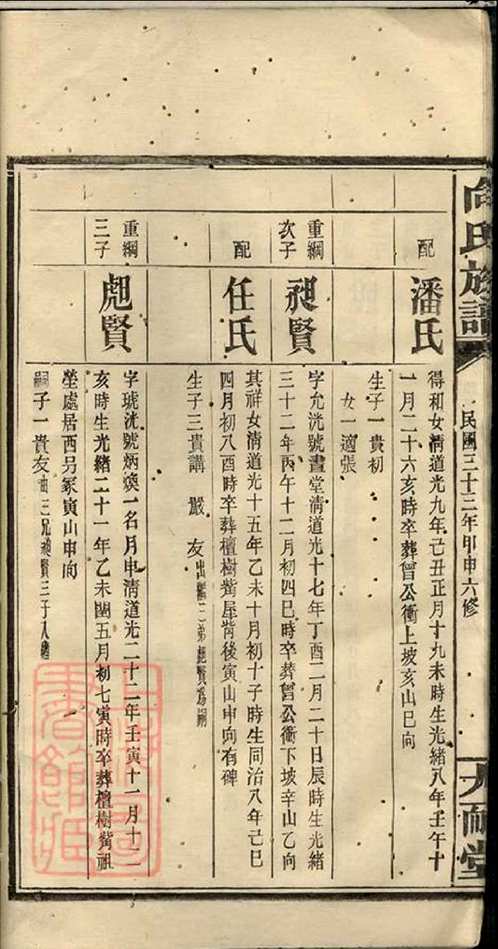 氏族譜
民國三十三年甲申六修
大耐堂
配
潘氏
得和女清道光九年己丑正月十九未時生光緒八年壬午十
一月二十六亥時卒葬曾公衝上坡亥山巳向
生子一貴初
女一適張
重綱
次子
昶賢
字允洸號晝堂清道光十七年丁酉二月二十日辰時生光緒
三十二年丙午十二月初四巳時卒葬曾公衝下坡辛山乙向
配
任氏
其祥女清道光十五年乙未十月初十子時生同治八年己巳
四月初八酉時卒葬檀樹觜屋背後寅山申向有碑
生子三貴講 嚴 友出繼三弟彪賢為嗣
重綱
三子
彪賢
字琥洸號炳煥一名月申清道光二十二年壬寅十一月十二
亥時生光緒二十一年乙未閏五月初七寅時卒葬檀樹觜祖
塋處居西另冢寅山申向
嗣子一貴友